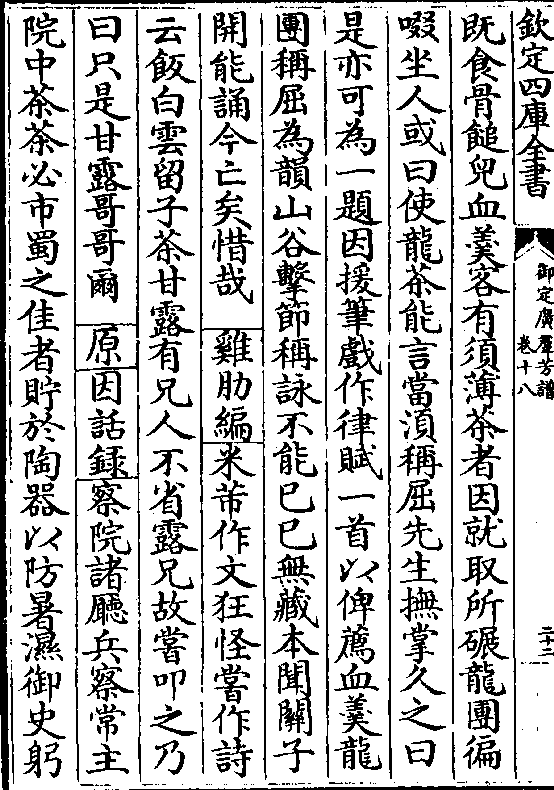 欽定四庫全書
御定廣羣芳譜
卷十八
二十二
既食骨䭔兒血羮客有須薄茶者因就取所碾龍團徧
啜坐人或曰使龍茶能言當湏稱屈先生撫掌久之曰
是亦可為一題因援筆戲作律賦一首以俾薦血羮龍
團稱屈為韻山谷擊節稱詠不能已已無藏本聞關子
開能誦今亡矣惜哉 雞肋編 米芾作文狂怪嘗作詩
云飯白雲留子茶甘露有兄人不省露兄故嘗叩之乃
曰只是甘露哥哥爾 原 因話録 察院諸廳兵察常主
院中茶茶必市蜀之佳者貯於陶器以防暑濕御史躬